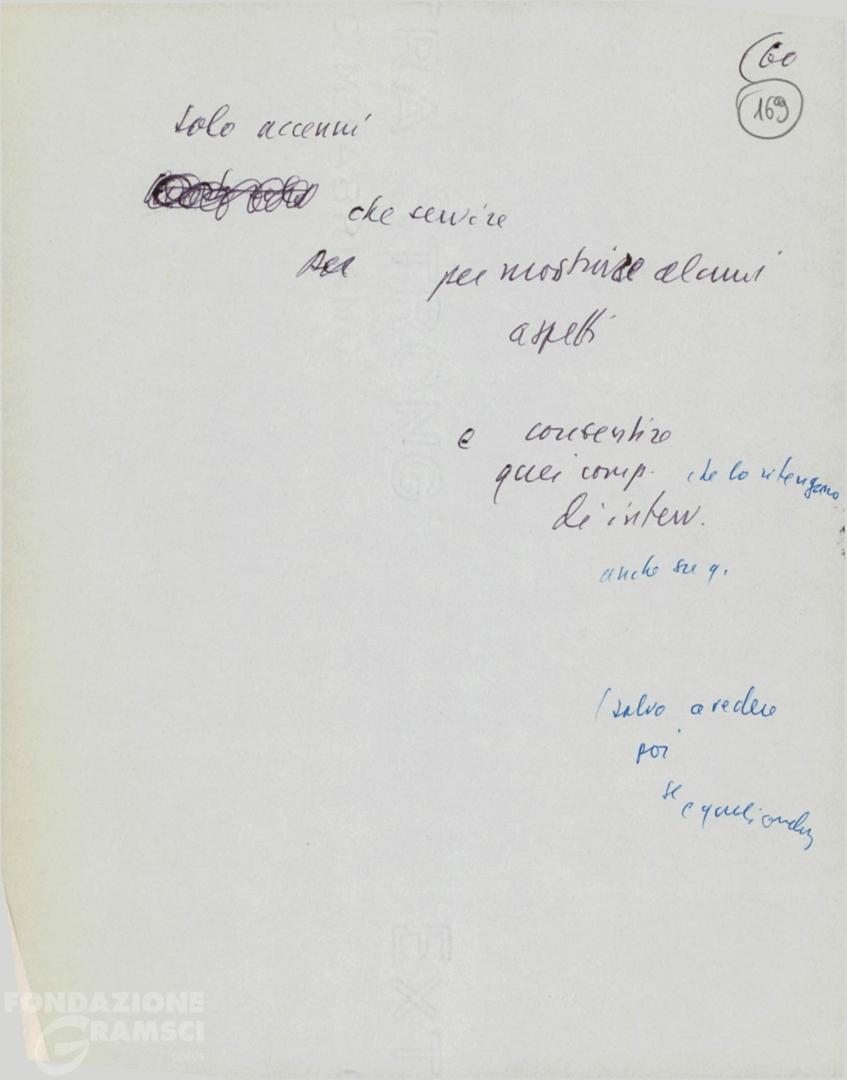 (60
169
solo accenni
che servire
per per mostrare alcuni
aspetti
e consentire
quei comp. che lo ritengano
di interv.
anche su q.
(salvo a vedere
poi
se
e quali
FONDAZIONE
GRAMSCI
onlus